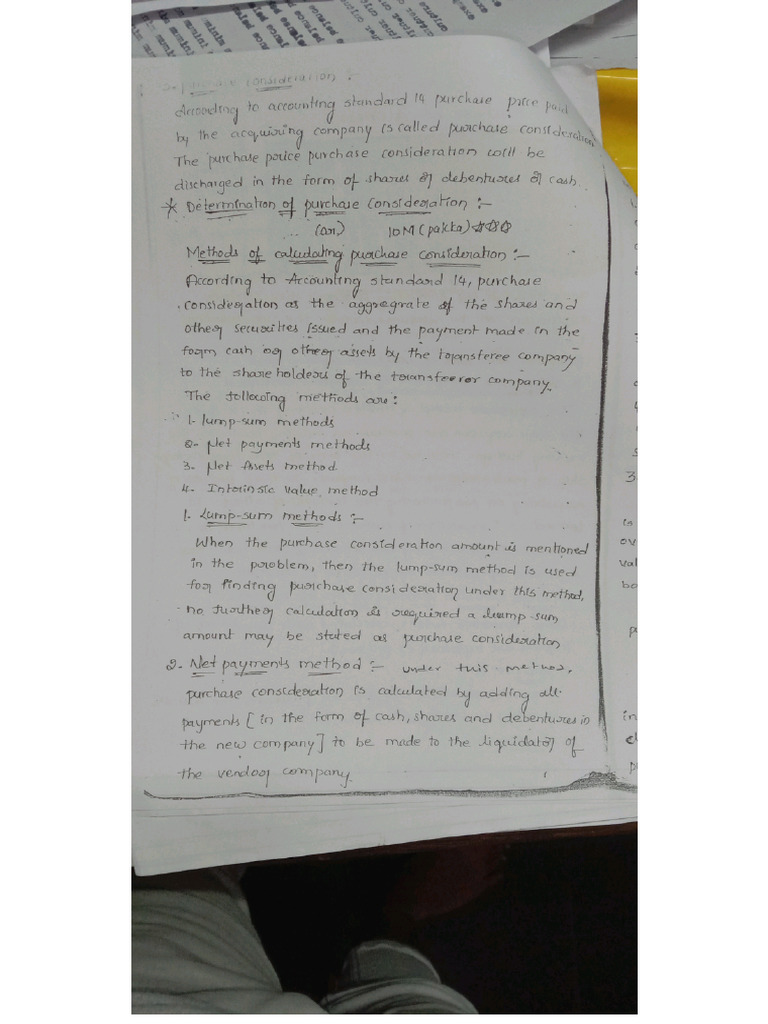 purchase consideration :-
According to accounting standard 14 purchase price paid
by the acquiring company is called purchase consideration
The purchase price purchase consideration will be
discharged in the form of shares or debentures or cash.
* Determination of purchase consideration :-
(or) 10M (pakka)
Methods of calculating purchase consideration :-
According to Accounting standard 14, purchase
consideration as the aggregrate of the shares and
other securities issued and the payment made in the
form cash or other assets by the transferee company
to the shareholders of the transferor company.
The following methods are:
1. lump-sum methods
2. Net payments methods
3. Net Assets method
4. Intrinsic value method
1. Lump-sum methods :-
When the purchase consideration amount is mentioned
in the problem, then the lump-sum method is used
for finding purchase consideration under this method,
no further calculation is required a lump-sum
amount may be stated as purchase consideration
2. Net payments method :- under this method,
purchase consideration is calculated by adding all
payments [in the form of cash, shares and debentures in
the new company] to be made to the liquidator of
the vendor company.